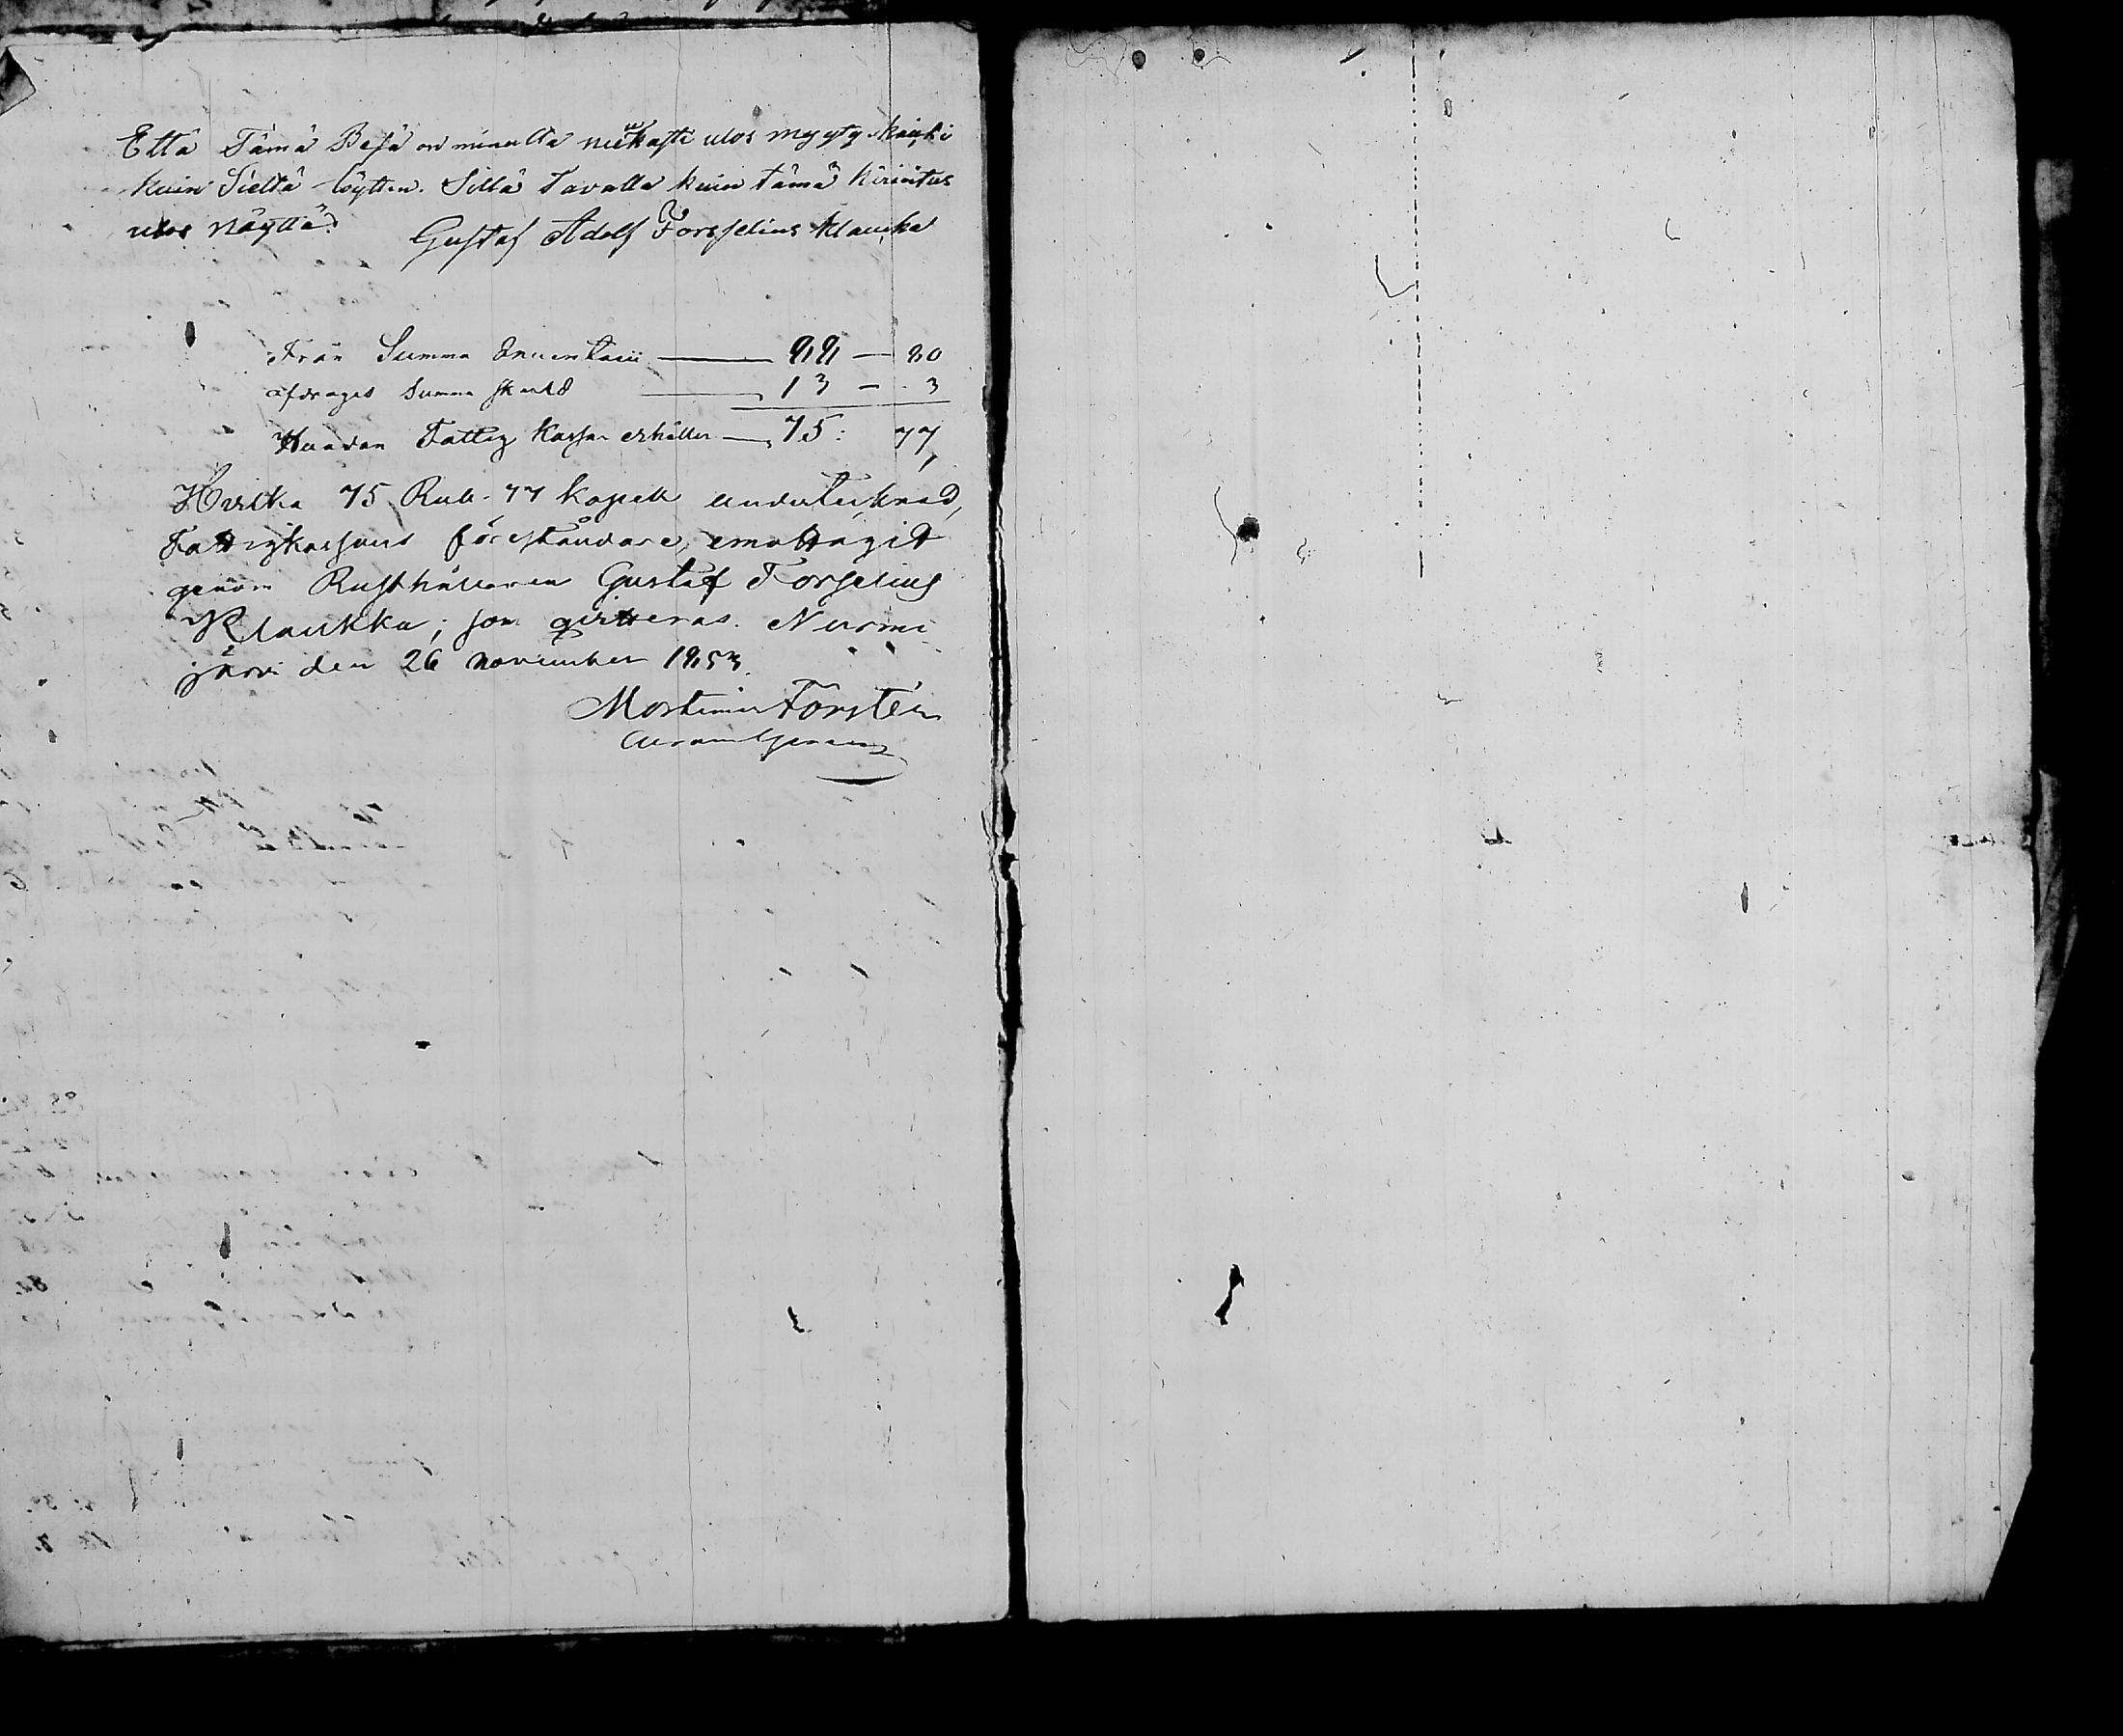 Että Tämä Pesä on minulta wiikasti ulos myyty kaiki
kuin Sieltä löyttin. Sillä Tavalla kuin tämä kirioitus
ulos näyttä.
Gustaf Adolf Forsselius Klaucka
Från Summa Inventarii — 88 — 80
afdrages Summa skuld — 13 — 3
Hvadan Fattig Kassan erhåller — 75: 77
Hvilka 75 Rub. 77 kopek undertecknad,
Fattigkassans föreståndare, emottagit
genom Rusthållaren Gustaf Forselius
Klaukka; som qvitteras. Nurmi
järvi den 26 november 1853.
Mortimer Forstén